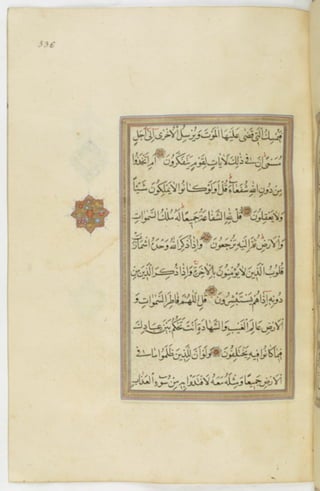 336
فيمسك التي قضى عليها الموت ويرسل الأخرى إلى أجل
مسمى إن في ذلك لآيات لقوم يتفكرون أم اتخذوا
من دون الله شفعاء قل أولو كانوا لا يملكون شيئا
ولا يعقلون قل لله الشفاعة جميعا له ملك السموات
والأرض ثم إليه ترجعون وإذا ذكر الله وحده اشمأزت
قلوب الذين لا يؤمنون بالآخرة وإذا ذكر الذين من
دونه إذا هم يستبشرون قل اللهم فاطر السموات و
الأرض عالم الغيب والشهادة أنت تحكم بين عبادك
فيما كانوا فيه يختلفون ولو أن للذين ظلموا ما في
الأرض جميعا ومثله معه لافتدوا به من سوء العذاب